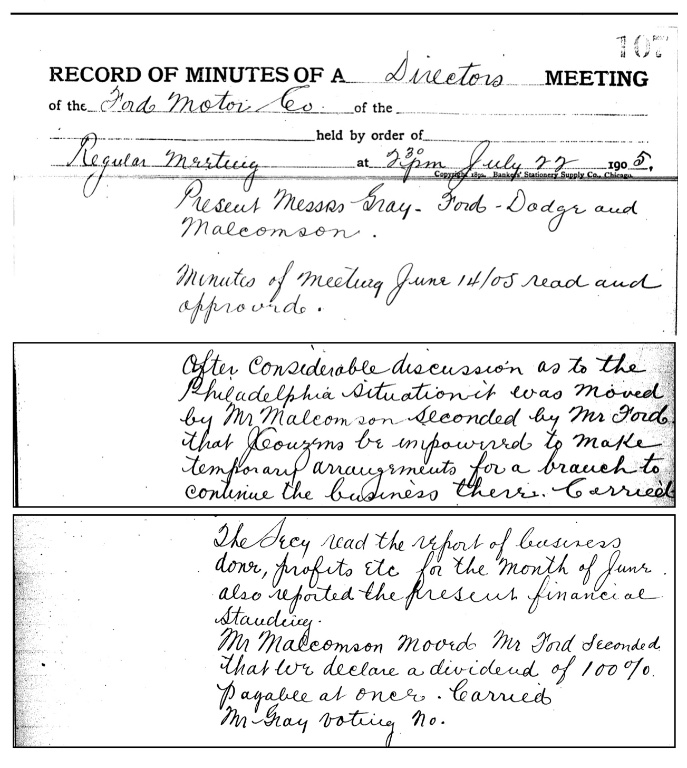 107
RECORD OF MINUTES OF A Directors MEETING
of the Ford Motor Co. of the
held by order of
Regular Meeting at 2 30 pm July 22 1905,
Copyright 1891. Bankers' Stationery Supply Co., Chicago.
Present Messrs Gray - Ford - Dodge and
Malcomson.
Minutes of Meeting June 14/05 read and
approved.
After considerable discussion as to the
Philadelphia situation it was moved
by Mr Malcomson seconded by Mr Ford
that JCouzens be impowered to make
temporary arrangements for a branch to
continue the business there. Carried
The Secy read the report of business
done, profits etc for the month of June.
also reported the present financial
standing.
Mr Malcomson moved Mr Ford seconded
that we declare a dividend of 100%.
payable at once. Carried
Mr Gray voting no.